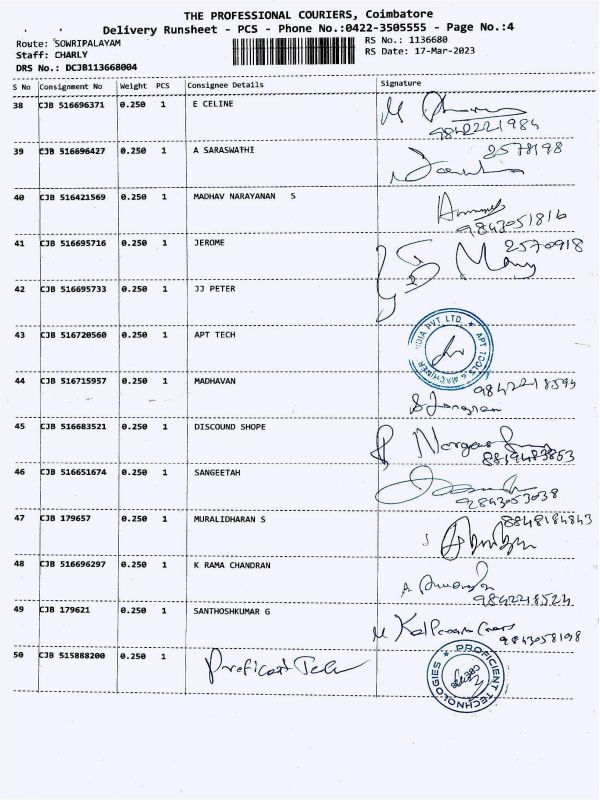 THE PROFESSIONAL COURIERS, Coimbatore
Delivery Runsheet - PCS - Phone No.:0422-3505555 - Page No.:4
Route: SOWRIPALAYAM
RS No.: 1136680
Staff: CHARLY
RS Date: 17-Mar-2023
DRS No.: DCJB113668004
S No Consignment No Weight PCS Consignee Details Signature
38 CJB 516696371 0.250 1 E CELINE
9842221984
39 CJB 516696427 0.250 1 A SARASWATHI
2578198
40 CJB 516421569 0.250 1 MADHAV NARAYANAN S
9843051816
41 CJB 516695716 0.250 1 JEROME
2570918
42 CJB 516695733 0.250 1 JJ PETER
43 CJB 516720560 0.250 1 APT TECH
INDIA PVT LTD. ★ APT TOOLS & MACHINERY
44 CJB 516715957 0.250 1 MADHAVAN
45 CJB 516683521 0.250 1 DISCOUND SHOPE
46 CJB 516651674 0.250 1 SANGEETAH
9843053038
47 CJB 179657 0.250 1 MURALIDHARAN S
8848184843
48 CJB 516696297 0.250 1 K RAMA CHANDRAN
9842218524
49 CJB 179621 0.250 1 SANTHOSHKUMAR G
9843058198
50 CJB 515888200 0.250 1 Proficent Tech
PROFICIENT TECHNOLOGIES ★ CBE